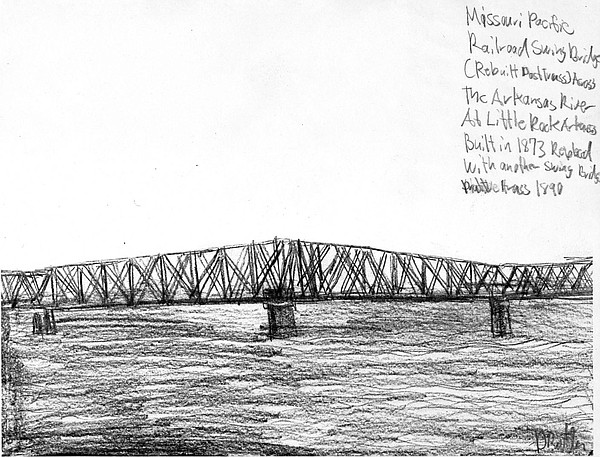 Missouri Pacific
Railroad Swing Bridge
(Rebuilt Post Truss) Across
The Arkansas River
At Little Rock Arkansas
Built in 1873 Replaced
With another Swing Bridge
Truss 1890